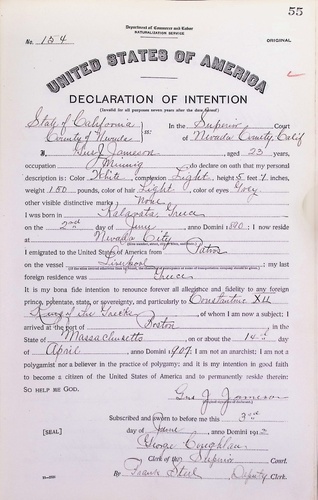 55
Department of Commerce and Labor
NATURALIZATION SERVICE
No. 154
ORIGINAL
UNITED STATES OF AMERICA
DECLARATION OF INTENTION
(Invalid for all purposes seven years after the date hereof)
State of California
County of Nevada ss:
In the Superior Court
of Nevada County, Calif
I, Gus J. Jameson, aged 23 years,
occupation Mining, do declare on oath that my personal
description is: Color White, complexion Light, height 5 feet 7 inches,
weight 150 pounds, color of hair Light, color of eyes Grey
other visible distinctive marks None
I was born in Kalagata, Greece
on the 2nd day of June, anno Domini 1890; I now reside
at Nevada City
I emigrated to the United States of America from Patras
on the vessel Liverpool; my last
foreign residence was Greece
It is my bona fide intention to renounce forever all allegiance and fidelity to any foreign
prince, potentate, state, or sovereignty, and particularly to Constantine XII
King of the Greeks, of whom I am now a subject; I
arrived at the port of Boston, in the
State of Massachusetts, on or about the 14th day
of April, anno Domini 1909; I am not an anarchist; I am not a
polygamist nor a believer in the practice of polygamy; and it is my intention in good faith
to become a citizen of the United States of America and to permanently reside therein:
SO HELP ME GOD.
Gus J. Jameson
Subscribed and sworn to before me this 3rd
[SEAL] day of June, anno Domini 1912
George Coughlan
Clerk of the Superior Court.
By Frank Steel, Deputy Clerk.